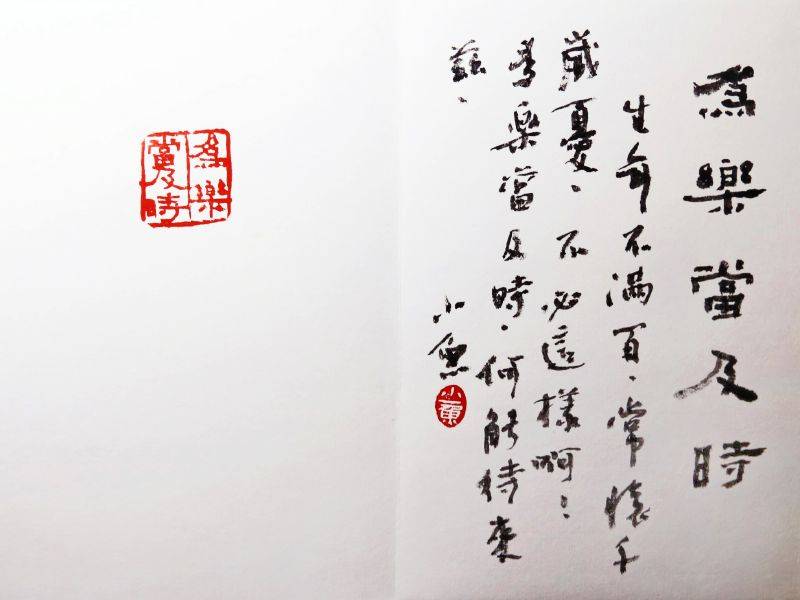 為樂當及時
生年不滿百、常懷千
歲憂、不必這樣啊:
為樂當及時、何能待來
茲、
小魚
小魚
為樂
當及時